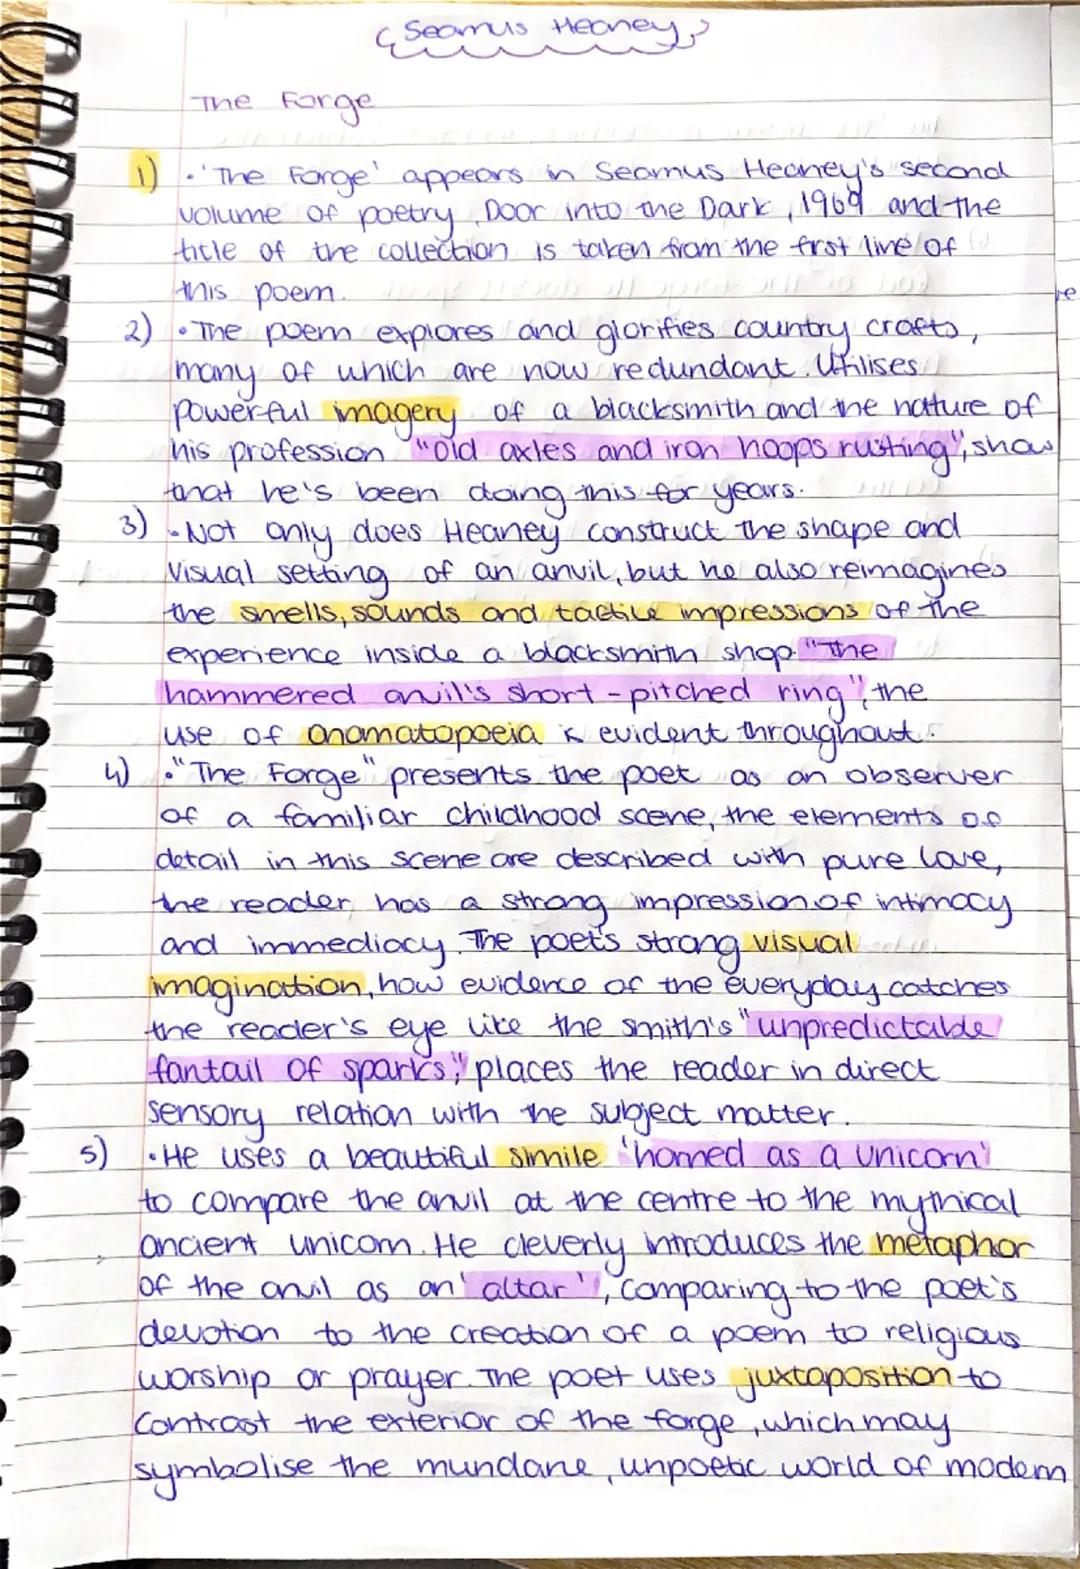 Seamus Heaney
The Forge
1) • 'The Forge' appears in Seamus Heaney's second
volume of poetry, Door into the Dark, 1969 and the
title of the collection is taken from the first line of
this poem.
2) • The poem explores and glorifies country crafts,
many of which are now redundant. Utilises
powerful imagery of a blacksmith and the nature of
his profession "old axles and iron hoops rusting", show
that he's been doing this for years.
3) • Not only does Heaney construct the shape and
visual setting of an anvil, but he also reimagines
the smells, sounds and tactile impressions of the
experience inside a blacksmith shop. "The
hammered anvil's short-pitched ring", the
use of onomatopoeia is evident throughout.
4) • "The Forge" presents the poet as an observer
of a familiar childhood scene, the elements of
detail in this scene are described with pure love,
the reader has a strong impression of intimacy
and immediacy. The poet's strong visual
imagination, how evidence of the everyday catches
the reader's eye like the smith's "unpredictable
fantail of sparks", places the reader in direct
sensory relation with the subject matter.
5) • He uses a beautiful simile 'horned as a unicorn'
to compare the anvil at the centre to the mythical
ancient unicorn. He cleverly introduces the metaphor
of the anvil as an 'altar', comparing to the poet's
devotion to the creation of a poem to religious
worship or prayer. The poet uses juxtaposition to
contrast the exterior of the forge, which may
symbolise the mundane, unpoetic world of modern